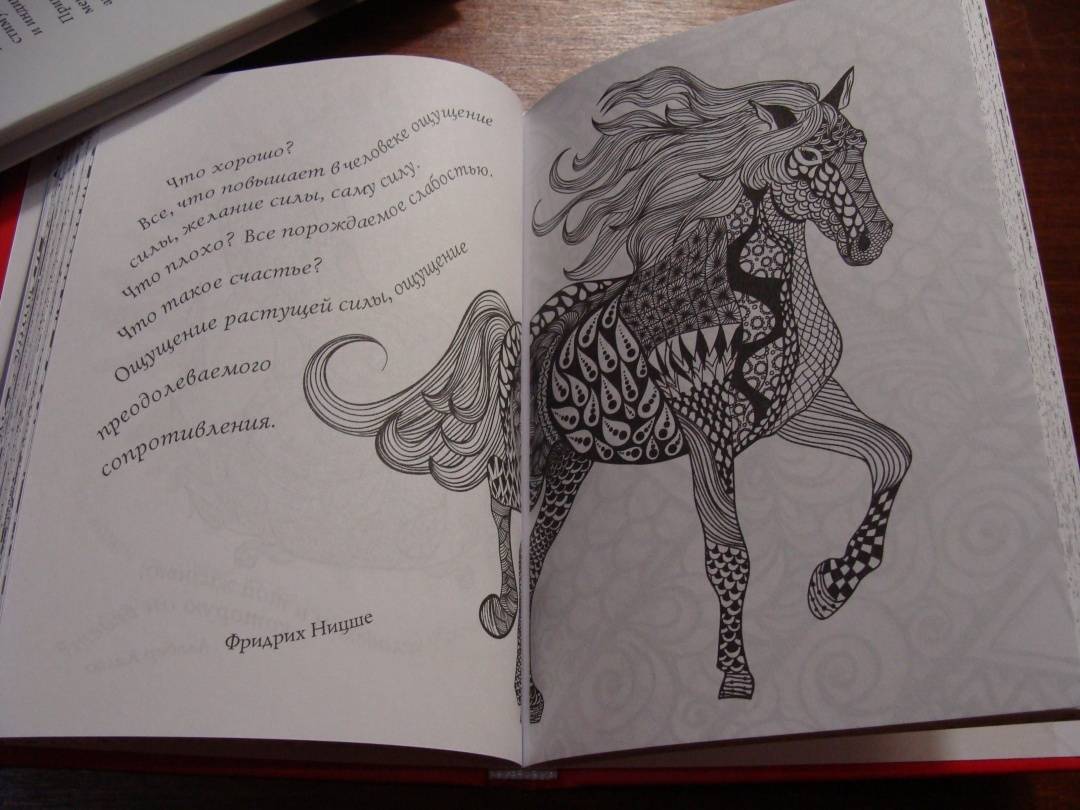 Что хорошо?
Все, что повышает в человеке ощущение
силы, желание силы, саму силу.
Что плохо? Все порождаемое слабостью.
Что такое счастье?
Ощущение растущей силы, ощущение
преодолеваемого
сопротивления.
Фридрих Ницше